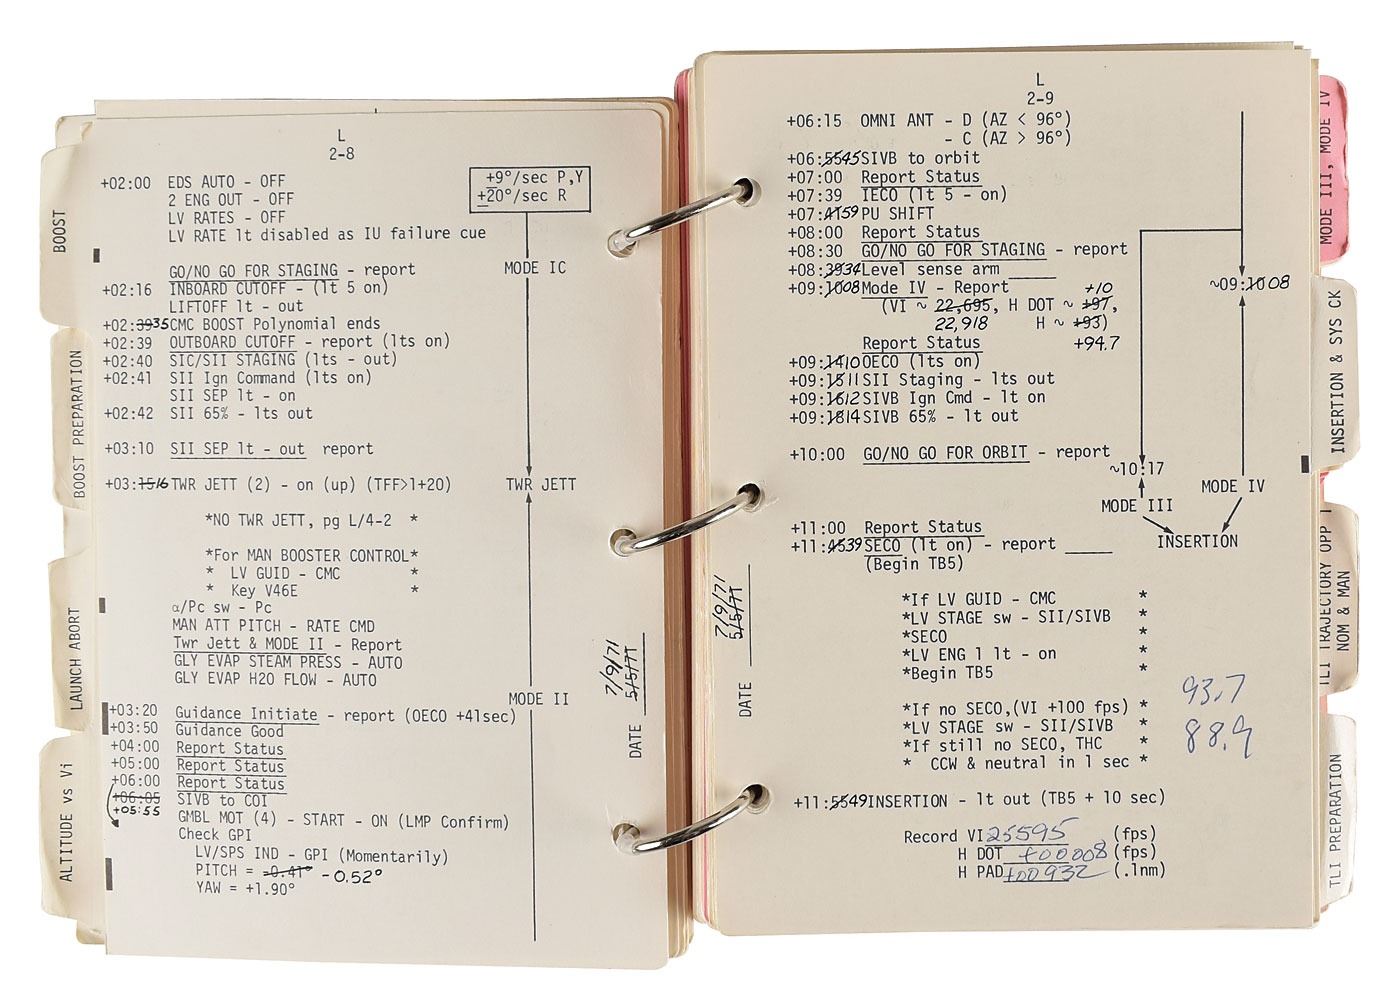 BOOST
BOOST PREPARATION
LAUNCH ABORT
ALTITUDE vs Vi
L
2-8
+9°/sec P,Y
+20°/sec R
+02:00 EDS AUTO - OFF
2 ENG OUT - OFF
LV RATES - OFF
LV RATE lt disabled as IU failure cue
GO/NO GO FOR STAGING - report MODE IC
+02:16 INBOARD CUTOFF - (lt 5 on)
LIFTOFF lt - out
+02:39 35 CMC BOOST Polynomial ends
+02:39 OUTBOARD CUTOFF - report (lts on)
+02:40 SIC/SII STAGING (lts - out)
+02:41 SII Ign Command (lts on)
SII SEP lt - on
+02:42 SII 65% - lts out
+03:10 SII SEP lt - out report
+03:15 16 TWR JETT (2) - on (up) (TFF>1+20) TWR JETT
*NO TWR JETT, pg L/4-2 *
*For MAN BOOSTER CONTROL*
* LV GUID - CMC *
* Key V46E *
α/Pc sw - Pc
MAN ATT PITCH - RATE CMD
Twr Jett & MODE II - Report
GLY EVAP STEAM PRESS - AUTO
GLY EVAP H2O FLOW - AUTO
MODE II
+03:20 Guidance Initiate - report (OECO +41sec)
+03:50 Guidance Good
+04:00 Report Status
+05:00 Report Status
+06:00 Report Status
+06:05 SIVB to COI
+05:55
GMBL MOT (4) - START - ON (LMP Confirm)
Check GPI
LV/SPS IND - GPI (Momentarily)
PITCH = -0.41° -0.52°
YAW = +1.90°
DATE 5/5/71 7/9/71
L
2-9
+06:15 OMNI ANT - D (AZ < 96°)
- C (AZ > 96°)
+06:55 45 SIVB to orbit
+07:00 Report Status
+07:39 IECO (lt 5 - on)
+07:59 PU SHIFT
+08:00 Report Status
+08:30 GO/NO GO FOR STAGING - report
+08:39 34 Level sense arm
+09:10 08 Mode IV - Report +10 ~09:10 08
(VI ~ 22,695, H DOT ~ +97,
22,918 H ~ +93)
Report Status +94.7
+09:14 10 OECO (lts on)
+09:15 11 SII Staging - lts out
+09:16 12 SIVB Ign Cmd - lt on
+09:18 14 SIVB 65% - lt out
+10:00 GO/NO GO FOR ORBIT - report
~10:17
MODE III MODE IV
+11:00 Report Status
+11:45 39 SECO (lt on) - report INSERTION
(Begin TB5)
*If LV GUID - CMC *
*LV STAGE sw - SII/SIVB *
*SECO *
*LV ENG 1 lt - on *
*Begin TB5 *
*If no SECO,(VI +100 fps) *
*LV STAGE sw - SII/SIVB *
*If still no SECO, THC *
* CCW & neutral in 1 sec *
93.7
88.9
+11:55 49 INSERTION - lt out (TB5 + 10 sec)
Record VI 25595 (fps)
H DOT +00008 (fps)
H PAD +00932 (.1nm)
DATE 5/5/71 7/9/71
MODE III, MODE IV
INSERTION & SYS CK
TLI TRAJECTORY OPP 1
NOM & MAN
TLI PREPARATION